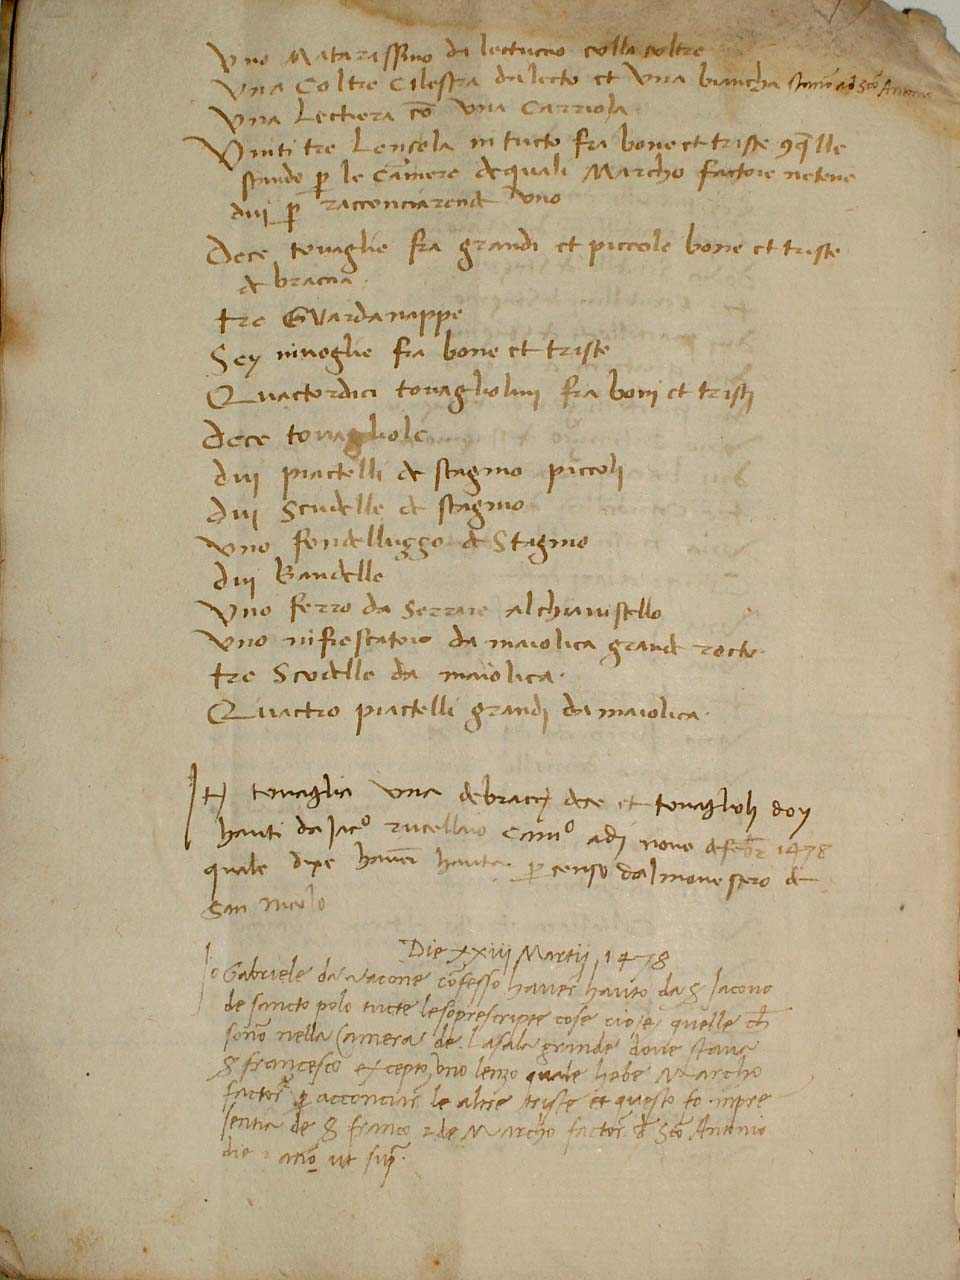 Vno Matarassino da lectuccio colla coltre
Vna Coltre Cilestra da lecto et Vna biancha stanno ad Sco Antonio
Vna Lectiera cō Vna Carriola.
Vinti tre Lenzola in tucto fra bone et triste
p le Camere de quali Marcho factore netene
dui p racconciarende Vno
Dece touaglie fra grandi et piccole bone et triste
de braccia.
tre GVardanappe
Sey fra bone et triste
QVactordici touagliolini fra bonj et tristj
Dece touagliole
dui piactelli de stagno piccoli
dui Scudelle de stagno
Vno de Stagno
dui Bandelle
Vno ferro da Serrare al chiauistello
Vno rifrescatoio da maiolica grande rocto.
tre Scodelle da maiolica.
QVactro piactelli grandj da maiolica.
It touaglia Vna de braccj dece et touagliolj doy
hauti da Jaco rucellaio adj noue de febr 1478
quale dixe hauer hauta p censo dal monestero de
San Nicolo
Die xxiij Martij 1478
Io Gabriele da Vacone cōfesso hauer hauto da S Jacouo
de sancto polo tucte le soprescripte cose cioe quelle ch
sonno nella Camera de La sala grande doue staua
S francesco excepto vno lenzo quale hebe Marcho
factor p acconciar le altre triste et questo fo inpre
sentia de S franco z de Marcho factor d Sco Antonio
die z año ut sup.